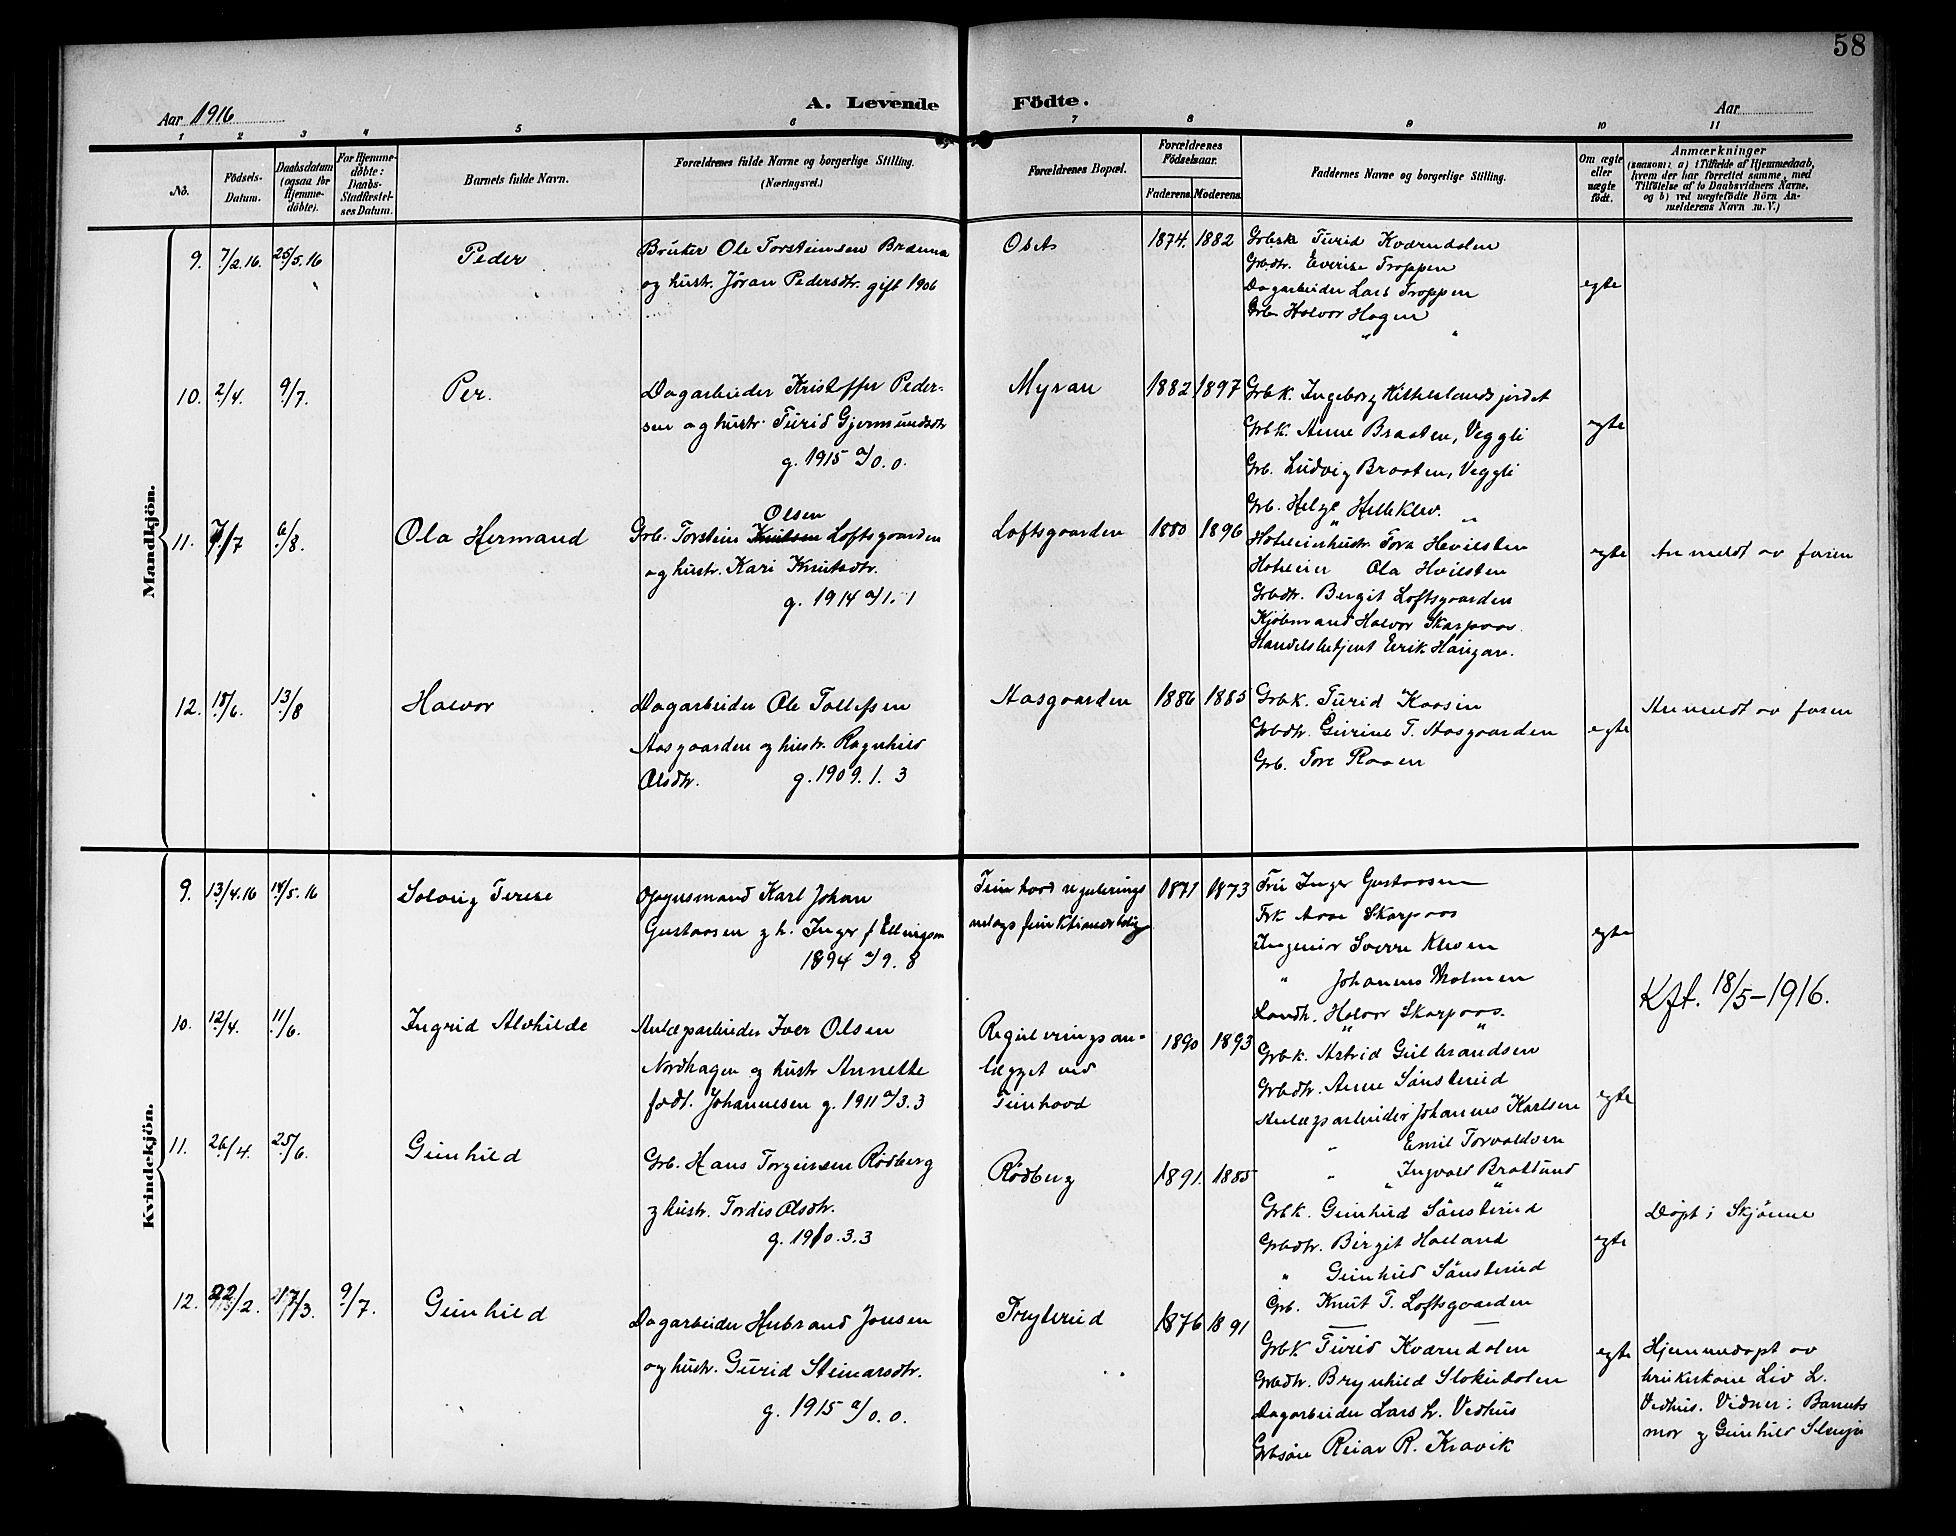 58
Aar 1916
A. Levende Födte.
Aar
1 2 3 4 5 6 7 8 9 10 11
No.
Födsels-Datum.
Daabsdatum (ogsaa for Hjemme-döbte).
For Hjemme-döbte: Daabs-Stadfæstel-ses Datum.
Barnets fulde Navn.
Forældrenes fulde Navne og borgerlige Stilling.
(Næringsvei.)
Forældrenes Bopæl.
Forældrenes Födselsaar.
Faderens. Moderens.
Faddernes Navne og borgerlige Stilling.
Om ægte eller uægte födt.
Anmærkninger
(saasom: a) i Tilfælde af Hjemmedaab, hvem der har forrettet samme, med Tilföielse af to Daabsvidners Navne, og b) ved uægtefödte Börn An-melderens Navn m. V.)
Mandkjön.
9. 7/2.16. 25/5.16
Peder
Bruker Ole Torsteinsen Bræma
og hustr. Jøran Pedersdtr. gift 1906
Oset
1874. 1882
Turid Kværndalen
Grbdtr. Troppen
Dagarbeider Lars Troppen
Grb. Halvor Hagen
" "
egte
10. 2/4. 9/7.
Per.
Dagarbeider Kristoffer Peder-
sen og hustr. Turid Gjermundsdtr
g. 1915 a/0.0.
Myran
1882 1897
Grbk. Ingeborg
Grbk. Anne Braaten, Veggli
Grb. Ludvig Braaten, Veggli
Grb. Helge Helleklev.
" "
egte
11. 7/7 6/8.
Ola Hermand
Olsen
Grb. Torstein Knutsen Loftsgaarden
og hustr. Kari Knutsdtr.
g. 1914 a/1.1
Loftsgaarden
1880 1896
Hoteleierhustr. Tora Hvilsten
Hoteleier Ola Hvilsten
Grbdtr. Bergit Loftsgaarden
Kjøbmand Halvor Skarpaas.
Handelsbetjent Erik
egte
Anmeldt av faren
12. 18/6. 13/8
Halvor
Dagarbeider Ole Tollefsen
Aasgaarden og hustr. Ragnhild
Olsdtr. g. 1909.1.3
Aasgaarden
1886 1885
Grbk. Turid Kaasin
Grbdtr. Gurine T. Aasgaarden
Grb. Tore Raaen
egte
Anmeldt av faren
Kvindekjön.
9. 13/4.16 14/5.16
Solveig Terese
Opsynsmand Karl Johan
Gustavsen g h. Inger f Ellingsen
1894 a/9.8
Tunhovd regulerings
anlegs funktionærbolig
1871 1873
Fru Inger Gustavsen
Frk Aase Skarpaas
Ingeniør Sverre Kleven
" Johannes Holmen
Landh. Halvor Skarpaas.
" "
egte
Kft. 18/5-1916.
10. 12/4. 11/6.
Ingrid Alvhilde
Anlægsarbeider Iver Olsen
Nordhagen og hustr Annette
født. Johannesen g. 1911 a/3.3
Reguleringsan-
lægget ved
Tunhovd
1890 1893
Grbk. Astrid Gulbrandsen
Grbdtr. Anne Sønsterud
Anlægsarbeider Johannes Karlsen
" Emil Torvaldsen
" Ingvald Bratlund
" "
egte
11. 26/4. 25/6.
Gunhild
Grb. Hans Torgeirsen Rødberg
g hustr. Tordis Olsdtr.
g. 1910.3.3
Rødberg
1891. 1885
Grbk. Gunhild Sønsterud
Grbdtr. Birgit Haaland
" Gunhild Sønsterud
Grb. Knut T. Loftsgaarden
egte
Døpt i Skjønne
12. 22/2. 17/3. 9/7.
Gunhild
Dagarbeider Helbrand Jonsen
og hustr. Gurid Steinarsdtr.
g. 1915 a/0.0.
Fryterud
1876 1891
Grbk Turid Kværndalen
Grbdtr. Brynhild Stokudalen
Dagarbeider Lars L. Vedhus
Grbsøn Reiar R. Kravik
egte
Hjemmedøpt av
brukerkone Liv L.
Vedhus. Vidner: Barnets
mor g Gunhild